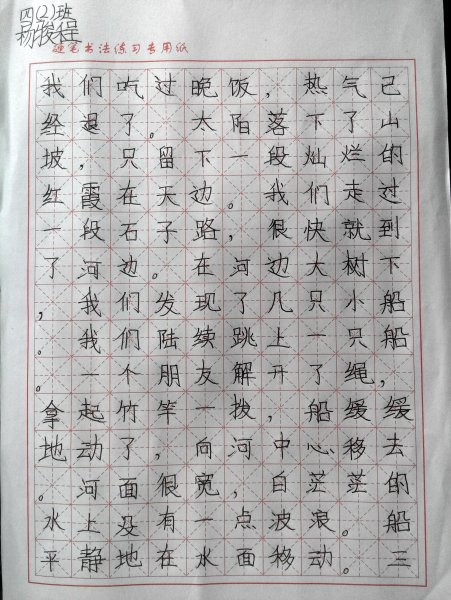 四(2)班
杨骏程
硬笔书法练习专用纸
我们吃过晚饭，热气己
经退了。太阳落下了山
坡，只留下一段灿烂的
红霞在天边。我们走过
一段石子路，很快就到
了河边。在河边大树下
，我们发现了几只小船
。我们陆续跳上一只船
。一个朋友解开了绳，
拿起竹竿一拨，船缓缓
地动了，向河中心移去
。河面很宽，白茫茫的
水上没有一点波浪。船
平静地在水面移动。三